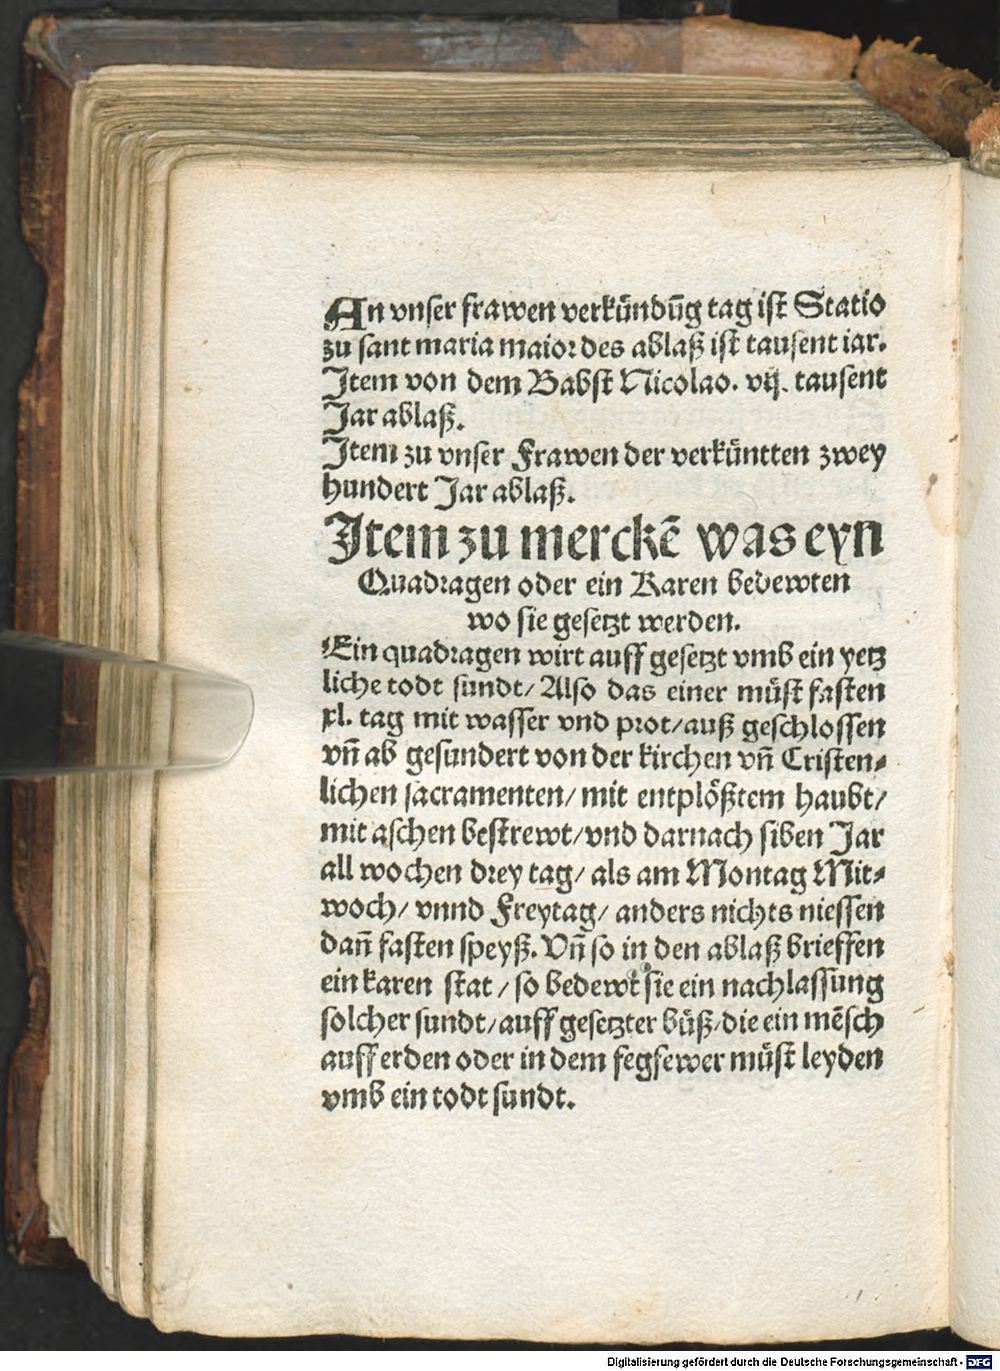 An vnser frawen verkündūg tag ist Statio
zu sant maria maior des ablaß ist tausent iar.
Item von dem Babst Nicolao. vij. tausent
Jar ablaß.
Item zu vnser Frawen der verküntten zwey
hundert Jar ablaß.
Item zu merckē was eyn
Quadragen oder ein Karen bedewten
wo sie gesetzt werden.
Ein quadragen wirt auff gesetzt vmb ein yetz
liche todt sundt/ Also das einer müst fasten
xl. tag mit wasser vnd prot/ auß geschlossen
vn̄ ab gesundert von der kirchen vn̄ Cristen⸗
lichen sacramenten/ mit entplößtem haubt/
mit aschen bestrewt/ vnd darnach siben Jar
all wochen drey tag/ als am Montag Mit⸗
woch/ vnnd Freytag/ anders nichts niessen
dan̄ fasten speyß. Vn̄ so in den ablaß brieffen
ein karen stat/ so bedewt sie ein nachlassung
solcher sundt/ auff gesetzter büß/ die ein mēsch
auff erden oder in dem fegfewer müst leyden
vmb ein todt sundt.
Digitalisierung gefördert durch die Deutsche Forschungsgemeinschaft - DFG